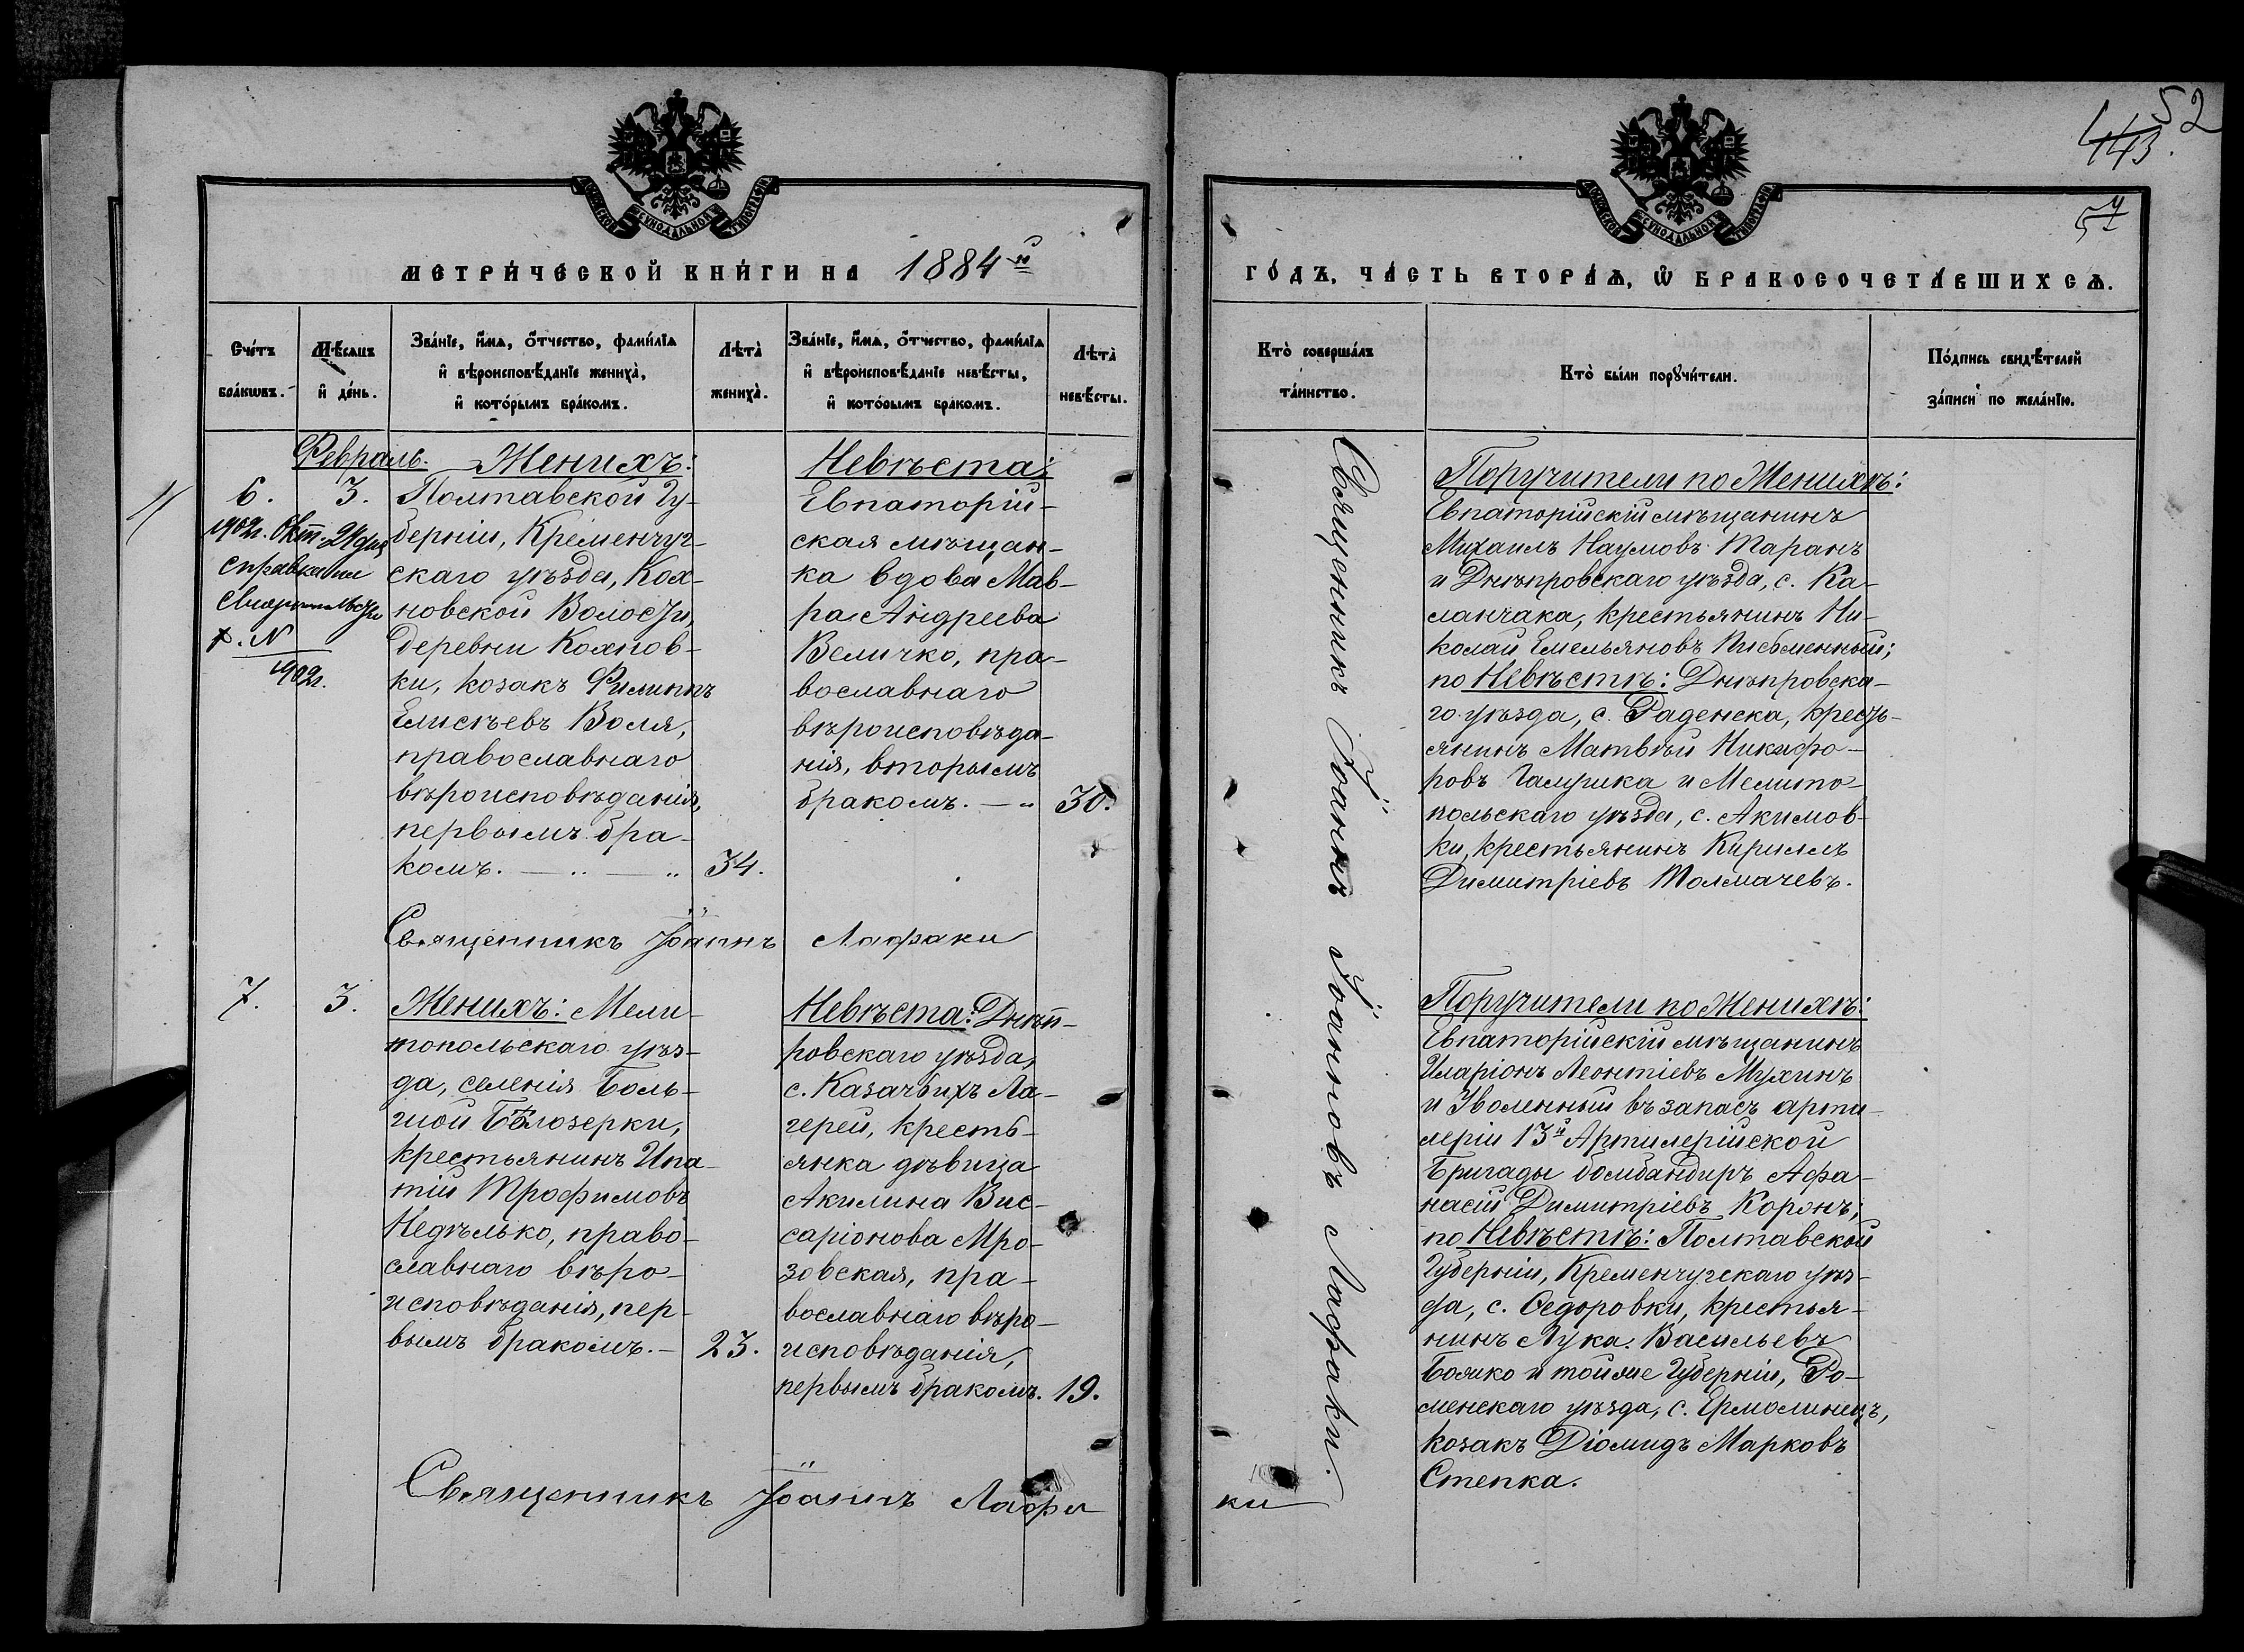 52
143.
57
МОСКОВСКОЙ СѴНОДАЛЬНОЙ ТИПОГРАФІИ
МЕТРИ́ЧЕСКОЙ КНИ́ГИ НА 1884й
Сче́тъ бра́кѡвъ.
Мѣ́сяцъ и҆ де́нь.
Зва́нїе, и҆́мѧ, ѻ҆́тчество, фами́лїѧ
и҆ вѣроисповѣ́данїе жениха̀,
и҆ кото́рымъ бра́комъ.
Лѣта̀ жениха̀.
Зва́нїе, и҆́мѧ, ѻ҆́тчество, фами́лїѧ
и҆ вѣроисповѣ́данїе невѣ́сты,
и҆ кото́рымъ бра́комъ.
Лѣта̀ невѣ́сты.
Февраль.
6.
3.
1902г. Окт. 24 дня
справка или
свидетельство
1902г.
Женихъ:
Полтавской Гу-
берніи, Кременчуг-
скаго уѣзда, Кох-
новской Волости,
деревни Кохнов-
ки, козакъ Филиппъ
Елисѣевъ Воля,
православнаго
вѣроисповѣданія,
первымъ бра-
комъ.
34.
Невѣста:
Евпаторій-
ская мѣщан-
ка вдова Мав-
ра Андреева
Величко, пра-
вославнаго
вѣроисповѣда-
нія, вторымъ
бракомъ.
30.
Священникъ Іоаннъ Лафаки
7.
3.
Женихъ: Мели-
топольскаго уѣз-
да, селенія Боль-
шой Бѣлозерки,
крестьянинъ Ипа-
тій Трофимовъ
Недѣлько, право-
славнаго вѣро-
исповѣданія, пер-
вымъ бракомъ.
23.
Невѣста: Днѣп-
ровскаго уѣзда,
с. Казачьихъ Ла-
герей, кресть-
янка дѣвица
Акилина Вис-
саріонова Мро-
зовская, пра-
вославнаго вѣро-
исповѣданія,
первымъ бракомъ.
19.
Священникъ Іоаннъ Лафа
ки
МОСКОВСКОЙ СѴНОДАЛЬНОЙ ТИПОГРАФІИ
ГО́ДЪ, ЧА́СТЬ ВТОРА́Ѧ, Ѽ БРАКОСОЧЕТА́ВШИХСѦ.
Кто̀ соверша́лъ та́инство.
Кто̀ бы́ли порꙋчи́тели.
По́дпись свидѣ́телей
за́писи по жела́нїю.
Священникъ Іоаннъ Іоанновъ Лафаки.
Поручители по Женихѣ:
Евпаторійскій мѣщанинъ
Михаилъ Наумовъ Таранъ
и Днѣпровскаго уѣзда, с. Ка-
ланчака, крестьянинъ Ни-
колай Емельяновъ Письменный;
по Невѣстѣ: Днѣпровска-
го уѣзда, с. Раденска, кресть-
янинъ Матвѣй Никифо-
ровъ Галушка и Мелито-
польскаго уѣзда, с. Акимов-
ки, крестьянинъ Кириллъ
Димитріевъ Толмачевъ.
Поручители по Женихѣ:
Евпаторійскій мѣщанинъ
Иларіонъ Леонтіевъ Мухинъ
и Уволенный въ запасъ арти-
леріи 13й Артилерійской
Бригады бомбандиръ Афа-
насій Димитріевъ Коронъ;
по Невѣстѣ: Полтавской
Губерніи, Кременчугскаго уѣз-
да, с. Ѳедоровки, крестья-
нинъ Лука Васильевъ
Божко и той же Губерніи, Ро-
менскаго уѣзда, с. Ермолинецъ,
козакъ Діомидъ Марковъ
Степка.